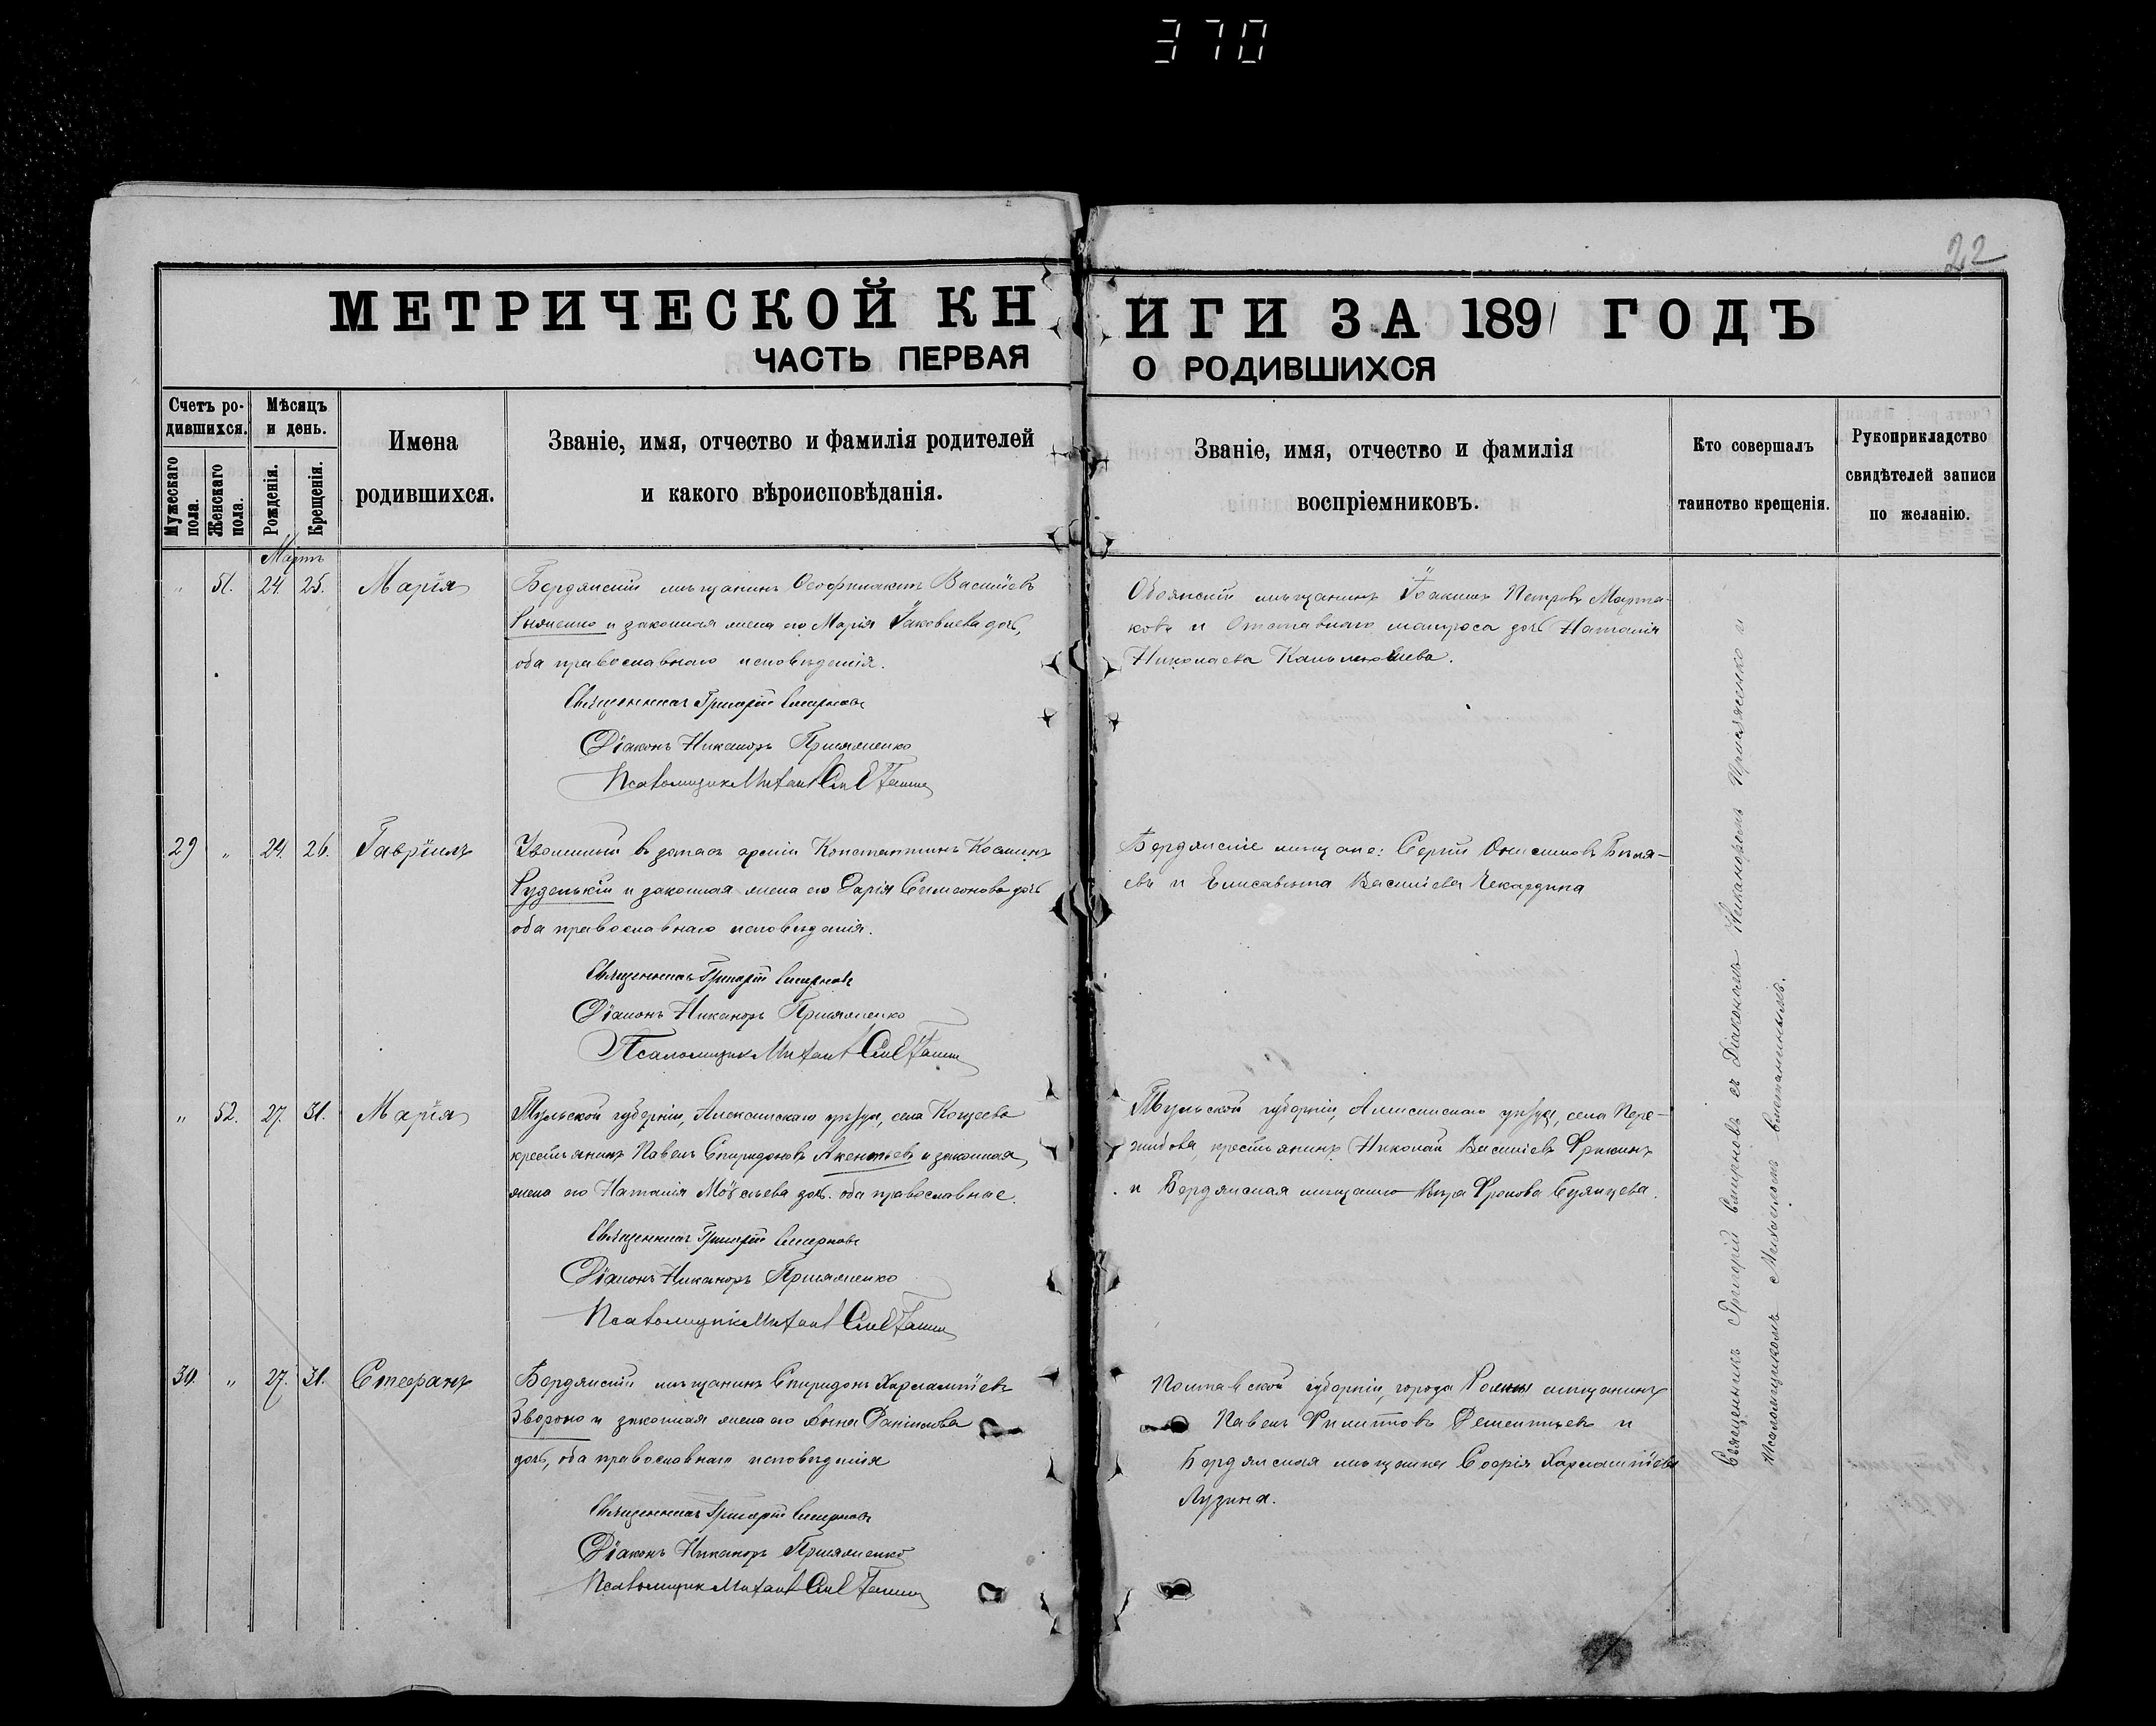 370
22
МЕТРИЧЕСКОЙ КНИГИ ЗА 1891 ГОДЪ
ЧАСТЬ ПЕРВАЯ О РОДИВШИХСЯ
Счетъ ро-
дившихся.
Мужескаго
пола.
Женскаго
пола.
Мѣсяцъ
и день.
Рожденія.
Крещенія.
Имена
родившихся.
Званіе, имя, отчество и фамилія родителей
и какого вѣроисповѣданія.
Званіе, имя, отчество и фамилія
воспріемниковъ.
Кто совершалъ
таинство крещенія.
Рукоприкладство
свидѣтелей записи
по желанію.
Мартъ
" 51. 24. 25. Марія
Бердянскій мѣщанинъ Ѳеофилактъ Васильевъ
и законная жена его Марія Іаковлева дочь,
оба православнаго исповѣданія.
Священникъ Григорій Смирновъ
Діаконъ Никаноръ Присяженко
Псаломщикъ Михаилъ
Обоянскій мѣщанинъ Іоакимъ Петровъ Марта-
ковъ и Отставнаго матроса дочь Наталія
Николаева
29 " 24. 26. Гавріилъ
Уволенный въ запасъ арміи Константинъ Косминъ
Руденькій и законная жена его Дарія Симеонова дочь
оба православнаго исповѣданія.
Священникъ Григорій Смирновъ
Діаконъ Никаноръ Присяженко
Псаломщикъ Михаилъ
Бердянскіе мѣщане: Сергій Онисимовъ Бѣля-
евъ и Елисавета Васильева Чекардина
" 52. 27. 31. Марія
Тульской губерніи, Алексинскаго уѣзда, села Кощеева
крестьянинъ Павелъ Спиридоновъ Акентьевъ и законная
жена его Наталія Моѵсеева дочь. оба православные.
Священникъ Григорій Смирновъ
Діаконъ Никаноръ Присяженко
Псаломщикъ Михаилъ
Тульской губерніи, Алексинскаго уѣзда, села Пере-
крестьянинъ Николай Васильевъ
и Бердянская мѣщанка Вѣра
30. " 27. 31. Стефанъ
Бердянскій мѣщанинъ Спиридонъ Харлампіевъ
Звороно и законная жена его Анна Даніилова
дочь, оба православнаго исповѣданія
Священникъ Григорій Смирновъ
Діаконъ Никаноръ Присяженко
Псаломщикъ Михаилъ
Полтавской губерніи, города Ромны мѣщанинъ
Павелъ Филипповъ Дементьевъ и
Бердянская мѣщанка Софія Харлампіева
Лузина.
Священникъ Григорій Смирновъ съ Діакономъ Никаноромъ Присяженко и
Псаломщикомъ Михаиломъ